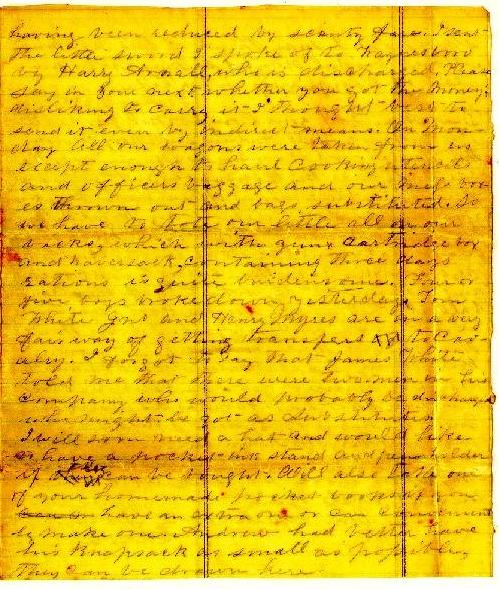 having been reduced by scanty fare. I sent
the little sword I spoke of to Waynesboro
by Harry Arnall, who is discharged. Please
say in your next whether you got the money,
disliking to carry it I thought best to
send it even by indirect means. On Mon
day all our wagons were taken from us
except enough to haul cooking utensils
and officers baggage and our mess box
es thrown out and bags substituted. So
we have to tote our little all on our
backs, which with guns cartridge box
and haversack, containing three days
rations is quite burdensome. Four or
five boys broke down yesterday. Tom
White and Henry are in a very
fair way of getting transfers to Cav-
alry. I forgot to say that James White
told me that there were two men in his
company who would probably be discharged
who might be got as substitutes
I will soon need a hat and would like
to have a pocket ink stand and pen holder
if they can be bought. Will also take one
of your homemade pocket books if
have an extra one or can convenient
ly make one. Andrew had better have
his knapsack as small as possible.
They can be drawn here.